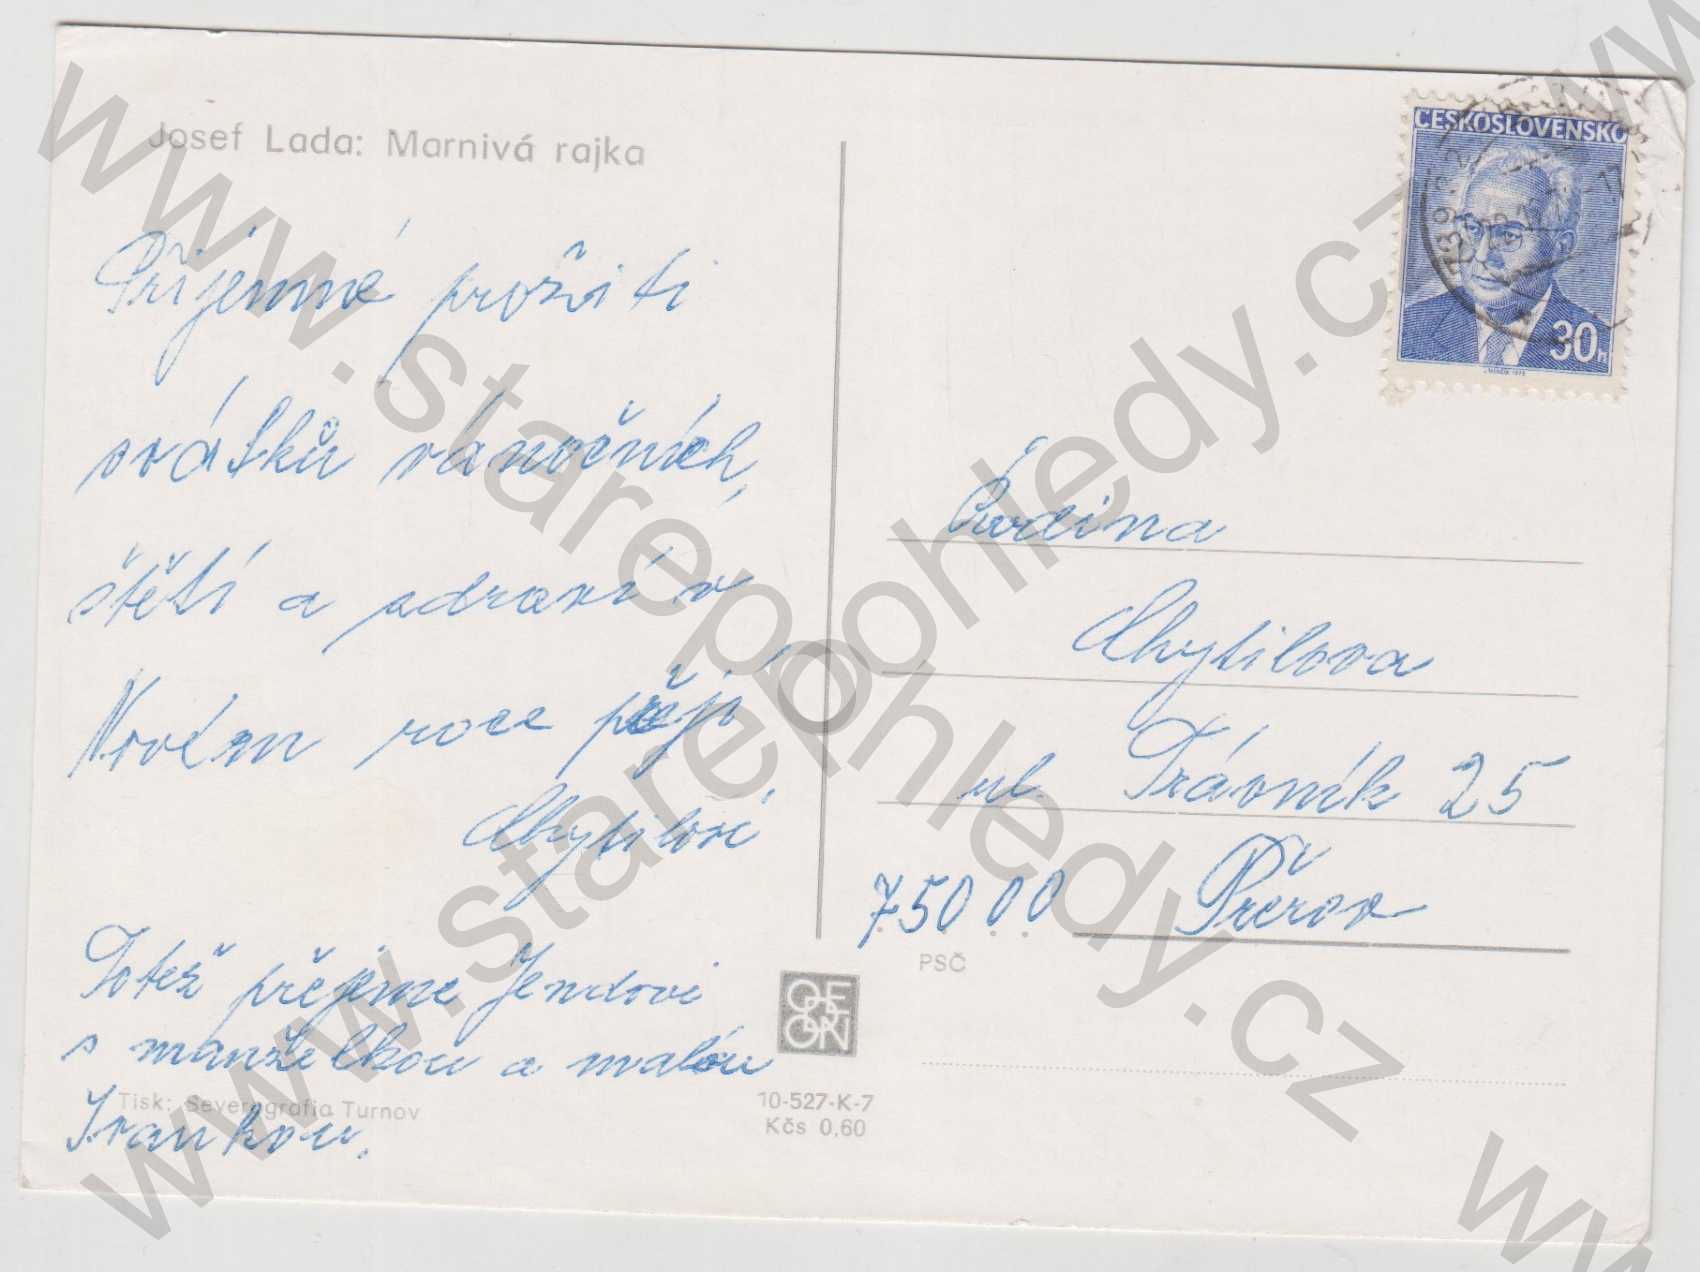 Josef Lada: Marnivá rajka
Příjemné prožití
svátků vánočních,
štěstí a zdraví v
Novém roce přejí
Chytilovi
Totéž přejeme Jendovi
s manželkou a malou
Ivankou.
Tisk: Severografia Turnov
10-527-K-7
Kčs 0,60
ODEON
ČESKOSLOVENSKO
30h
Ct. rodina
Chytilova
ul. Trávník 25
750 00 Přerov
PSČ
www.starepohledy.cz
www.starepohledy.cz